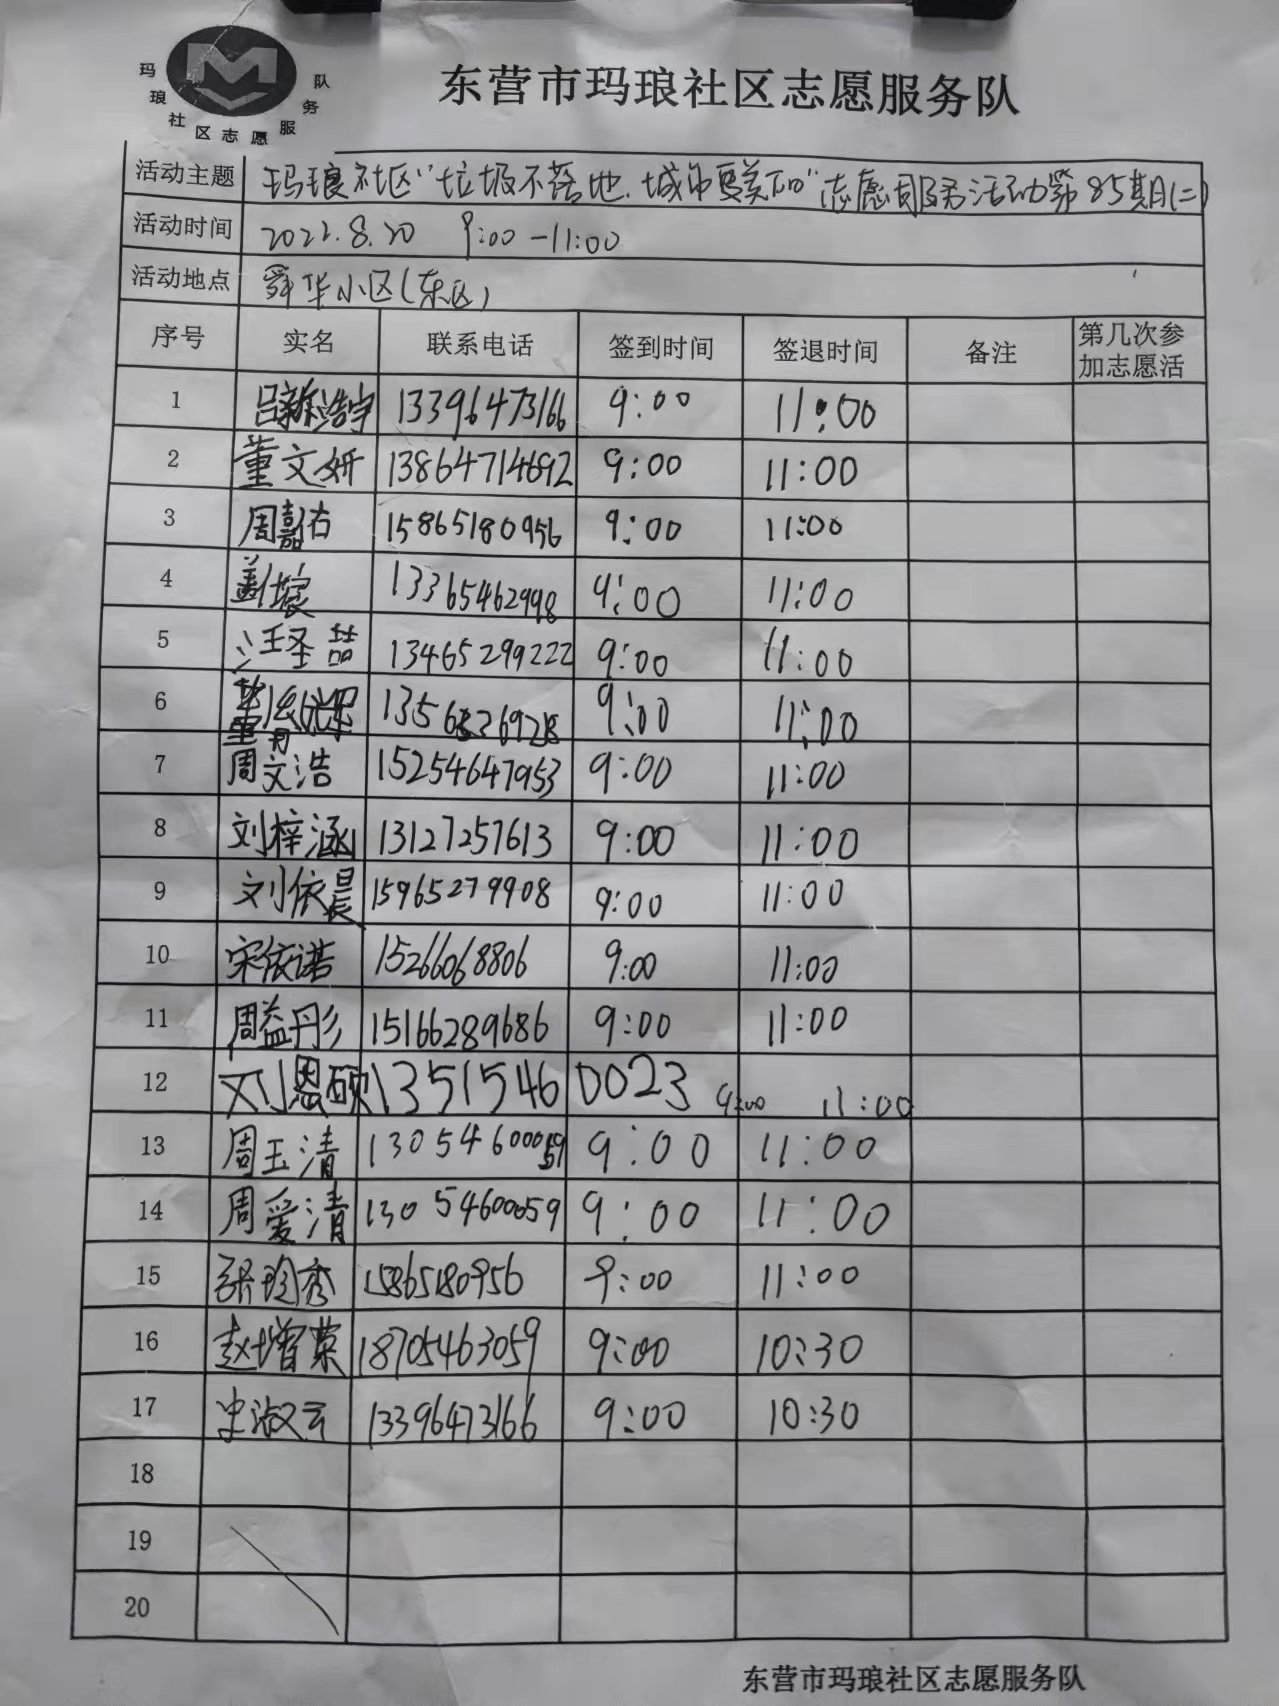 玛琅社区志愿服务队
东营市玛琅社区志愿服务队
活动主题 玛琅社区"垃圾不落地.城市更美丽"志愿服务活动第85期(二)
活动时间 2022.8.20 9:00-11:00
活动地点 舜华小区(东区)
序号 实名 联系电话 签到时间 签退时间 备注 第几次参加志愿活
1 吕新浩宇 13396473166 9:00 11:00
2 董文妍 13864714692 9:00 11:00
3 周嘉佑 15865180956 9:00 11:00
4 13365462998 9:00 11:00
5 汪圣喆 13465299222 9:00 11:00
6 9:00 11:00
7 周文浩 15254647953 9:00 11:00
8 刘梓涵 13127257613 9:00 11:00
9 刘依晨 15965279908 9:00 11:00
10 宋依诺 15266068806 9:00 11:00
11 周益彤 15166289686 9:00 11:00
12 刘恩硕 13515460023 9:00 11:00
13 周玉清 13054600059 9:00 11:00
14 周爱清 13054600059 9:00 11:00
15 张玲秀 15865180956 9:00 11:00
16 赵增荣 18705463059 9:00 10:30
17 史淑云 13396473166 9:00 10:30
18
19
20
东营市玛琅社区志愿服务队